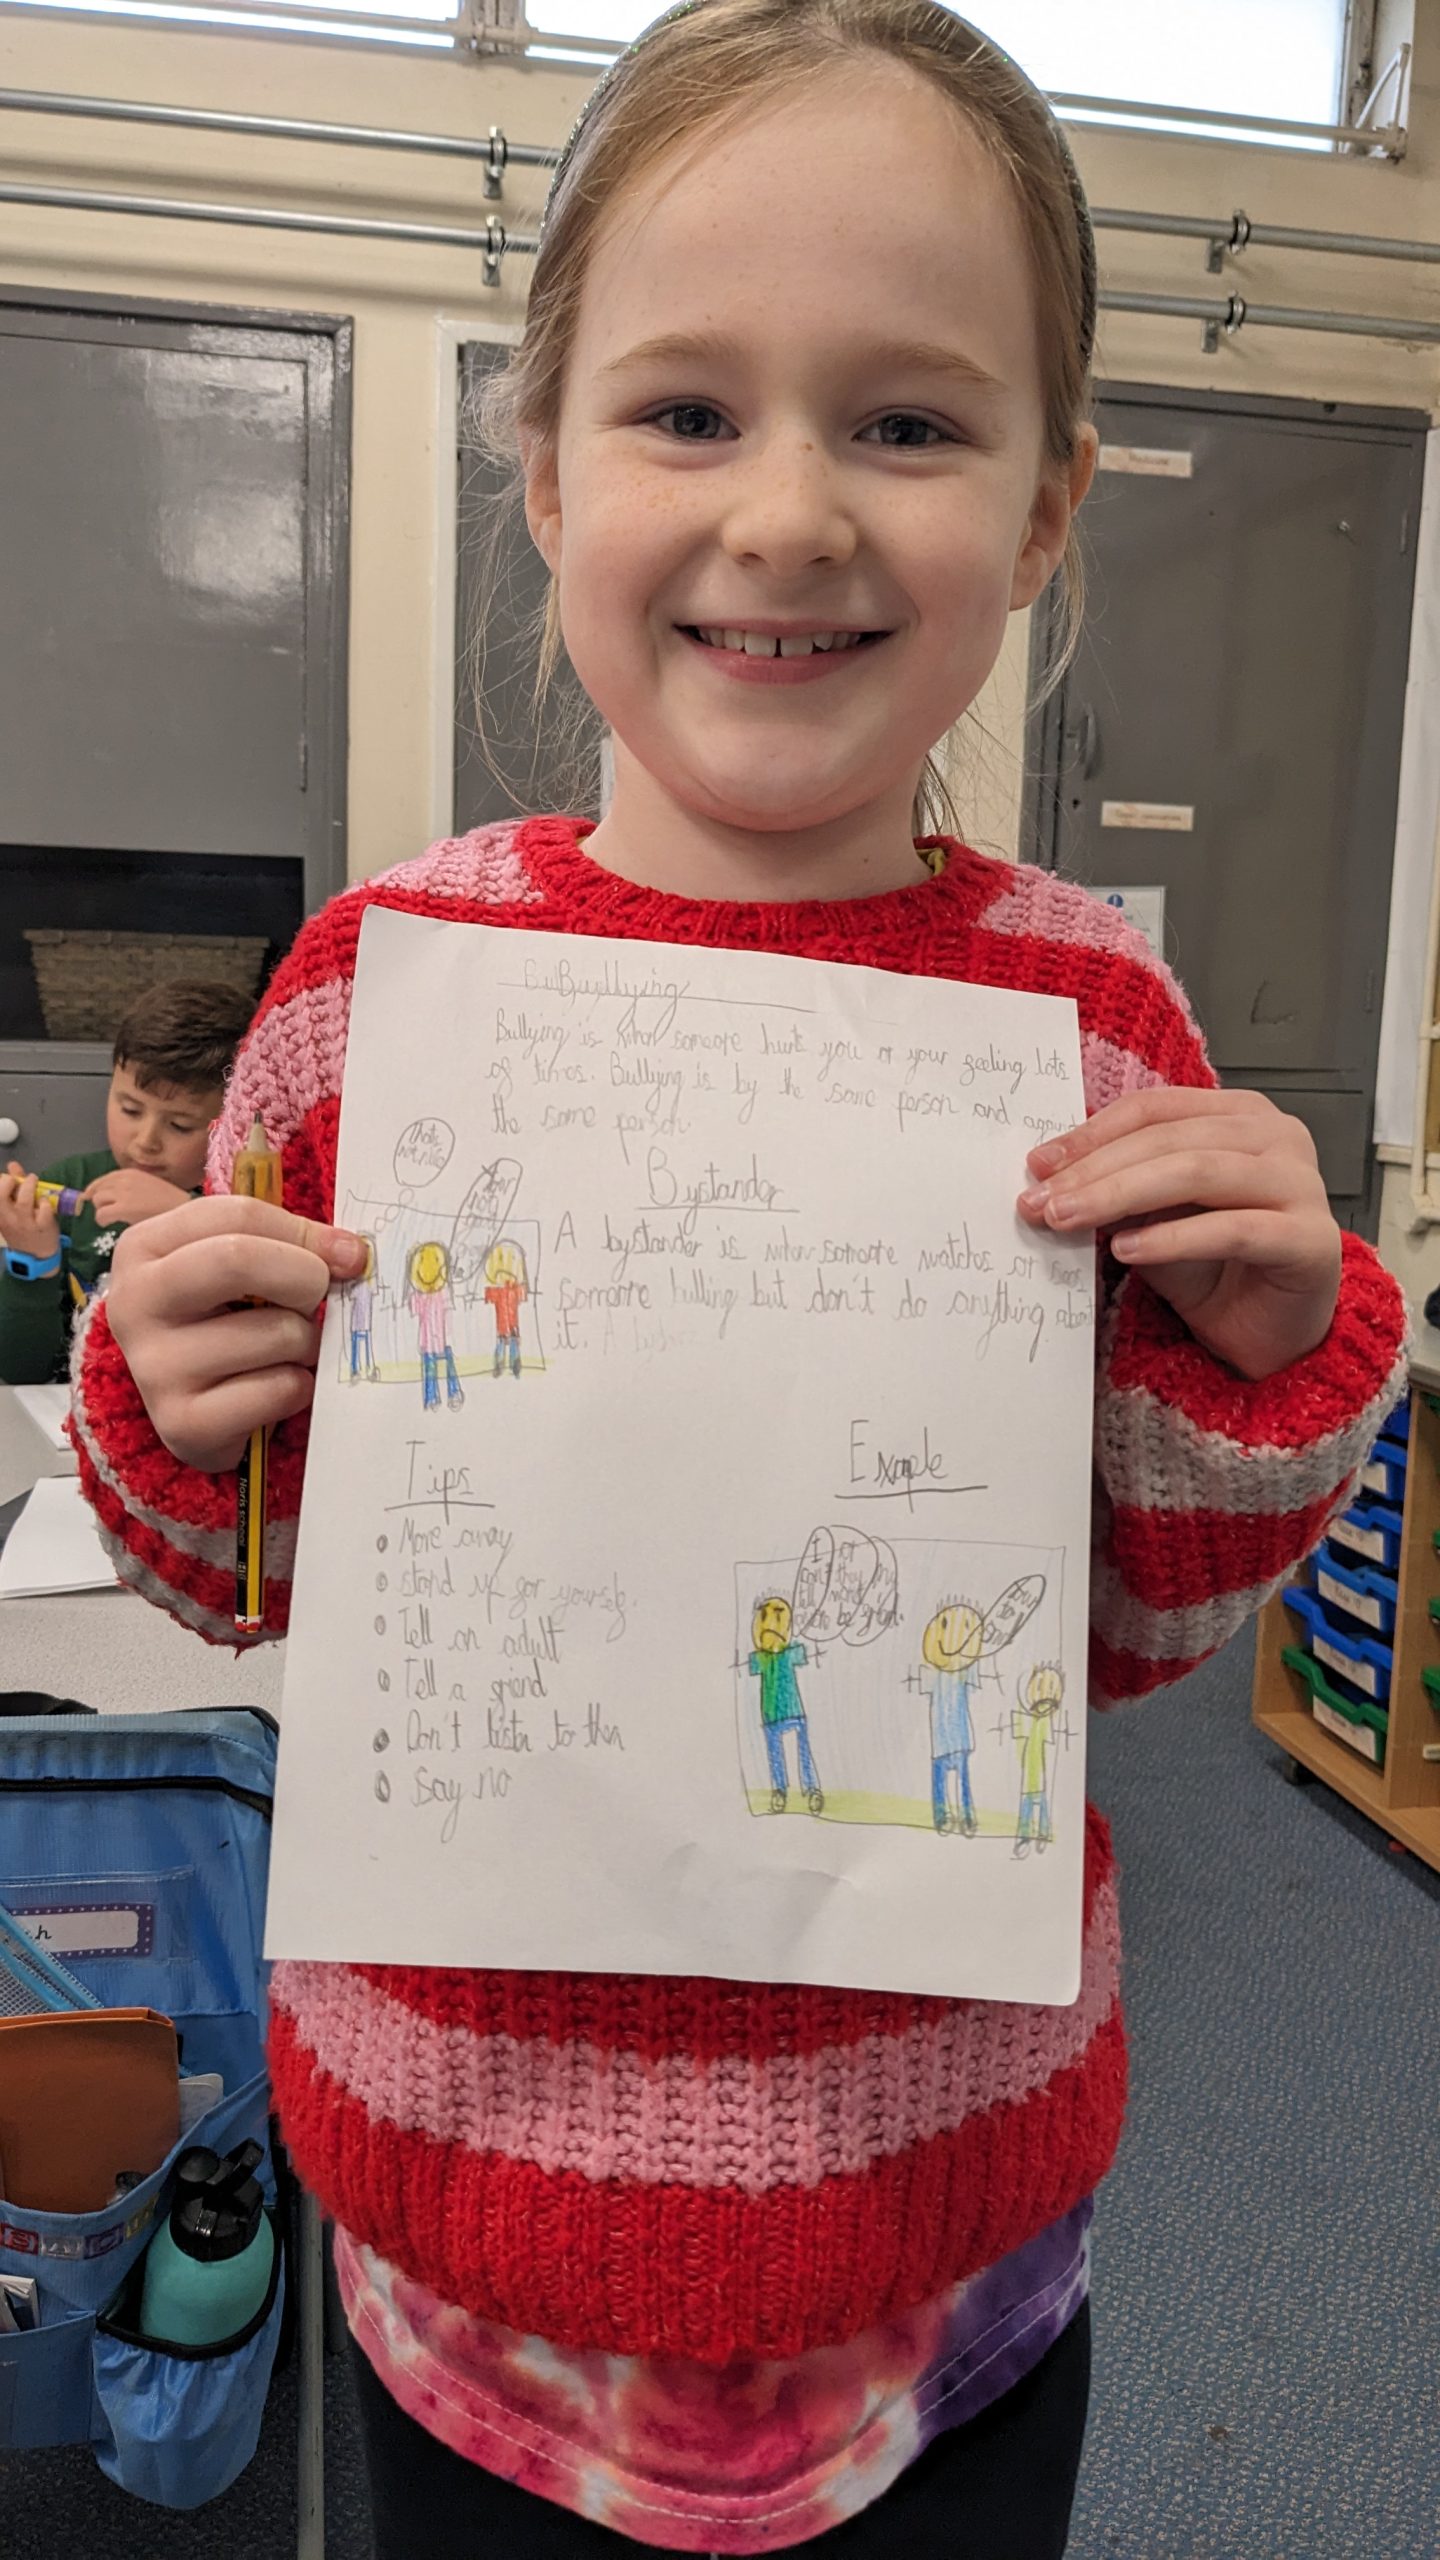 Bullying
Bullying is when someone hurts you or your feeling lots
of times. Bullying is by the same person and against
the same person.
thats
not nice
Your
not
good
Bystander
A bystander is when someone watches or sees
someone bulling but don't do anything about
it. A bystan
Tips
• Move away
• stand up for yourself.
• Tell an adult
• Tell a friend
• Don't listen to them
• say no
Exaple
I or
can't they my
tell won't
be friend.
Your
so
Noris school